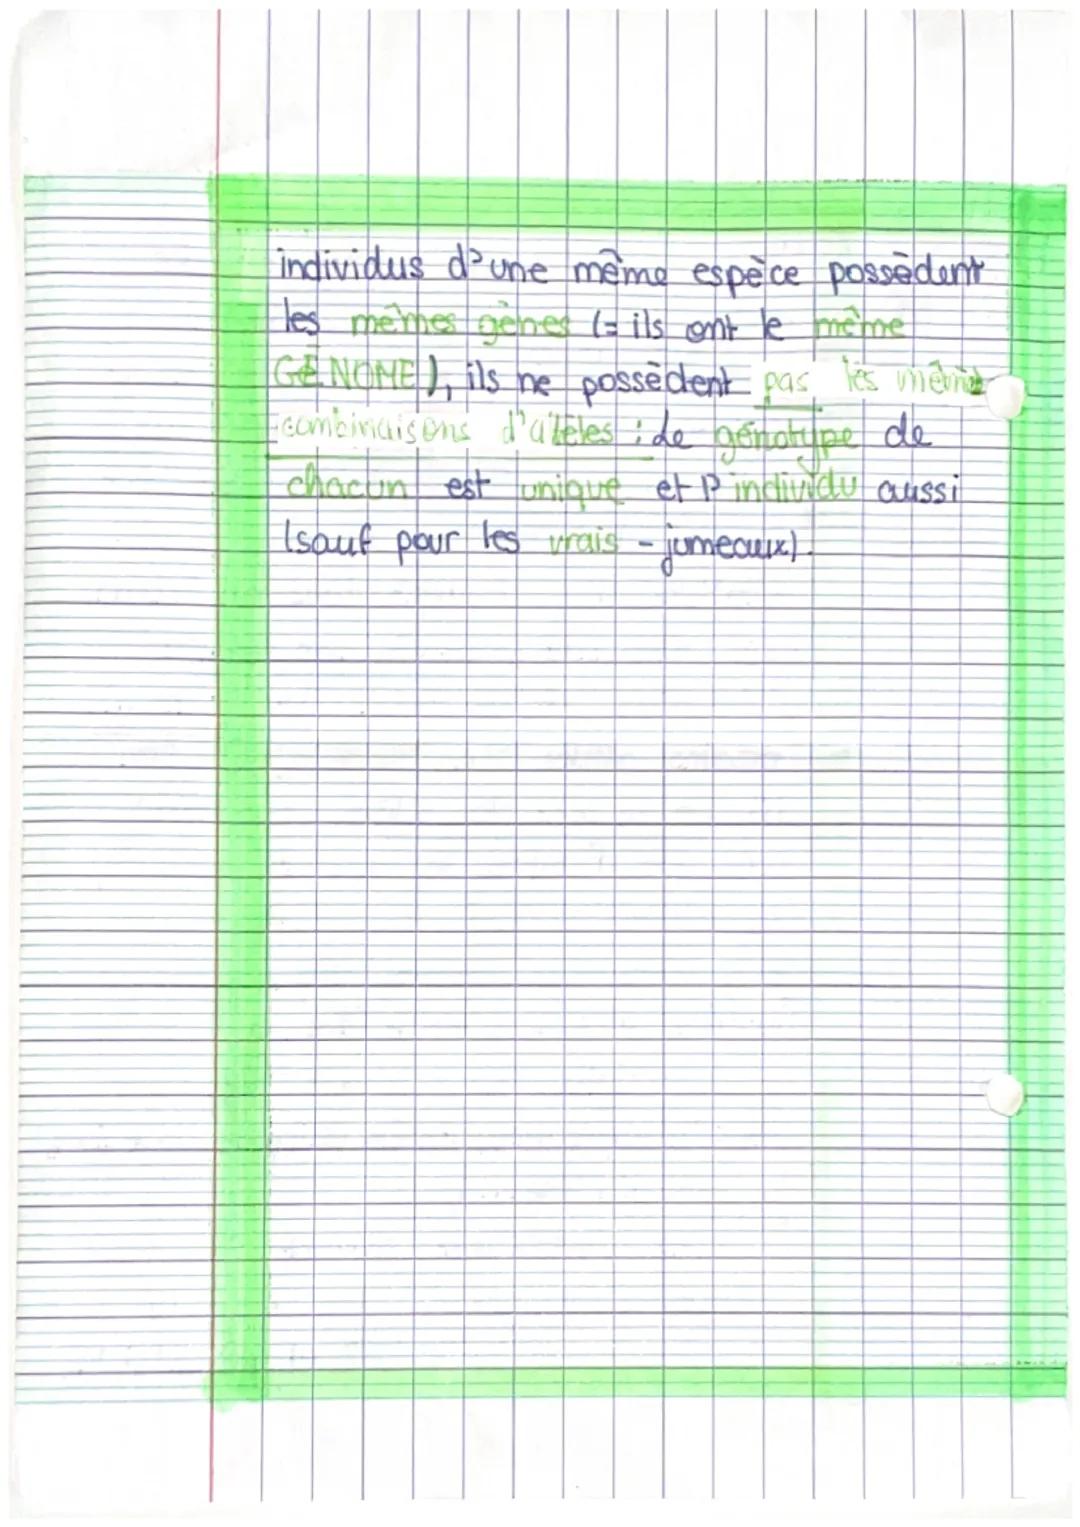 individus d'une même espèce possèdent
les mêmes gènes (= ils ont le même
GÉNOME), ils ne possèdent pas les mêmes
combinaisons d'allèles : Le génotype de
chacun est unique et l'individu aussi
(sauf pour les vrais - jumeaux).